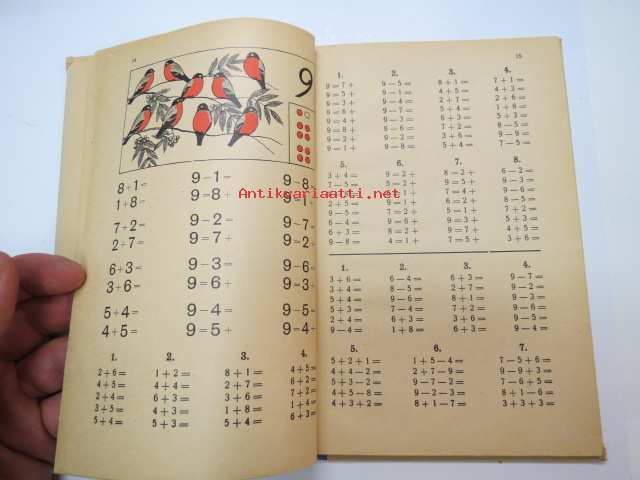 14
9
8+1=   9−1=   9−8
1+8=   9=8+   9=1
7+2=   9−2=   9−7=
2+7=   9=7+   9=2+
6+3=   9−3=   9−6=
3+6=   9=6+   9=3+
5+4=   9−4=   9−5=
4+5=   9=5+   9=4+
1.   2.   3.   4.
2+6=   1+2=   8+1=   4+5=
4+5=   4+4=   2+7=   6+2=
2+4=   6+3=   3+6=   7+2=
3+5=   4+3=   1+8=   1+4=
5+4=   6+3=   5+4=   6+3=
15
1.   2.   3.   4.
9=7+   9−5=   8+1=   7+1=
9=5+   9−1=   4+5=   4+3=
9=3+   9−4=   2+7=   2+6=
9=6+   9−7=   5+4=   1+8=
9=4+   9−3=   6+3=   5+3=
9=8+   9−6=   7+2=   3+6=
9=2+   9−2=   3+5=   9−9=
9=1+   9−8=   5+4=   7−5=
5.   6.   7.   8.
3+4=   9=2+   8−2+   6−2=
7+2=   9=5+   9−3=
2+5=   9=1+   6=2+   8−5=
9−5=   7=2+   5−1=   7+2=
7−4=   6=   9=3+   9−7=
6+3=   8=   8=   4+5=
9−8=   4=1+   7=5+   3+6=
1.   2.   3.   4.
3+6=   6−4=   6+3=   9−7=
3+4=   8−5=   2+7=   9−2=
5+4=   9−6=   8+1=   9−3=
5+3=   7−4=   7+2=   9−6=
2+4=   6+3=   3+6=   9−5=
9−4=   1+8=   6+3=   9−4=
5.   6.   7.
5+2+1=   1+5−4=   7−5+6=
4+4−2=   2+7−9=   9−3−6=
5+3−2=   9−7−2=   7−6+5=
4+5−8=   9−2−3=   8+1−6=
4+3+2=   8+1−7=   3+3+3=
Antikvariaatti.net